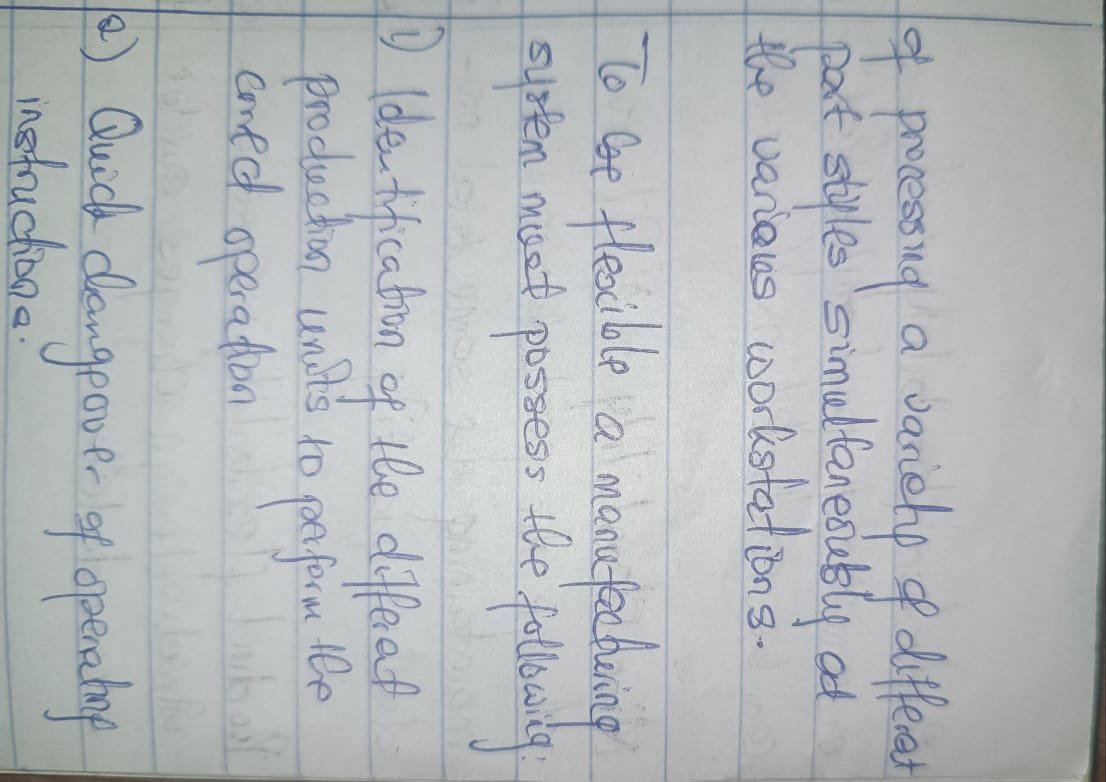 of processing a variety of different
part styles simultaneously at
the various workstations.
To be flexible a manufacturing
system must possess the following:
1) Identification of the different
production units to perform the
correct operation
2) Quick changeover of operating
instructions.